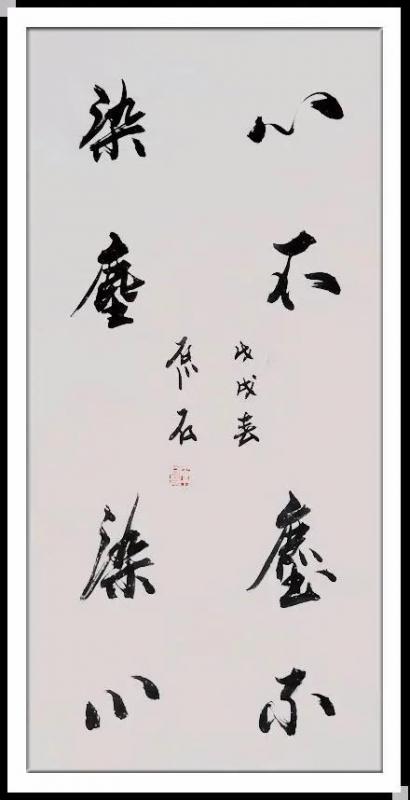 心不
染塵
塵不
染心
戊戌春
石